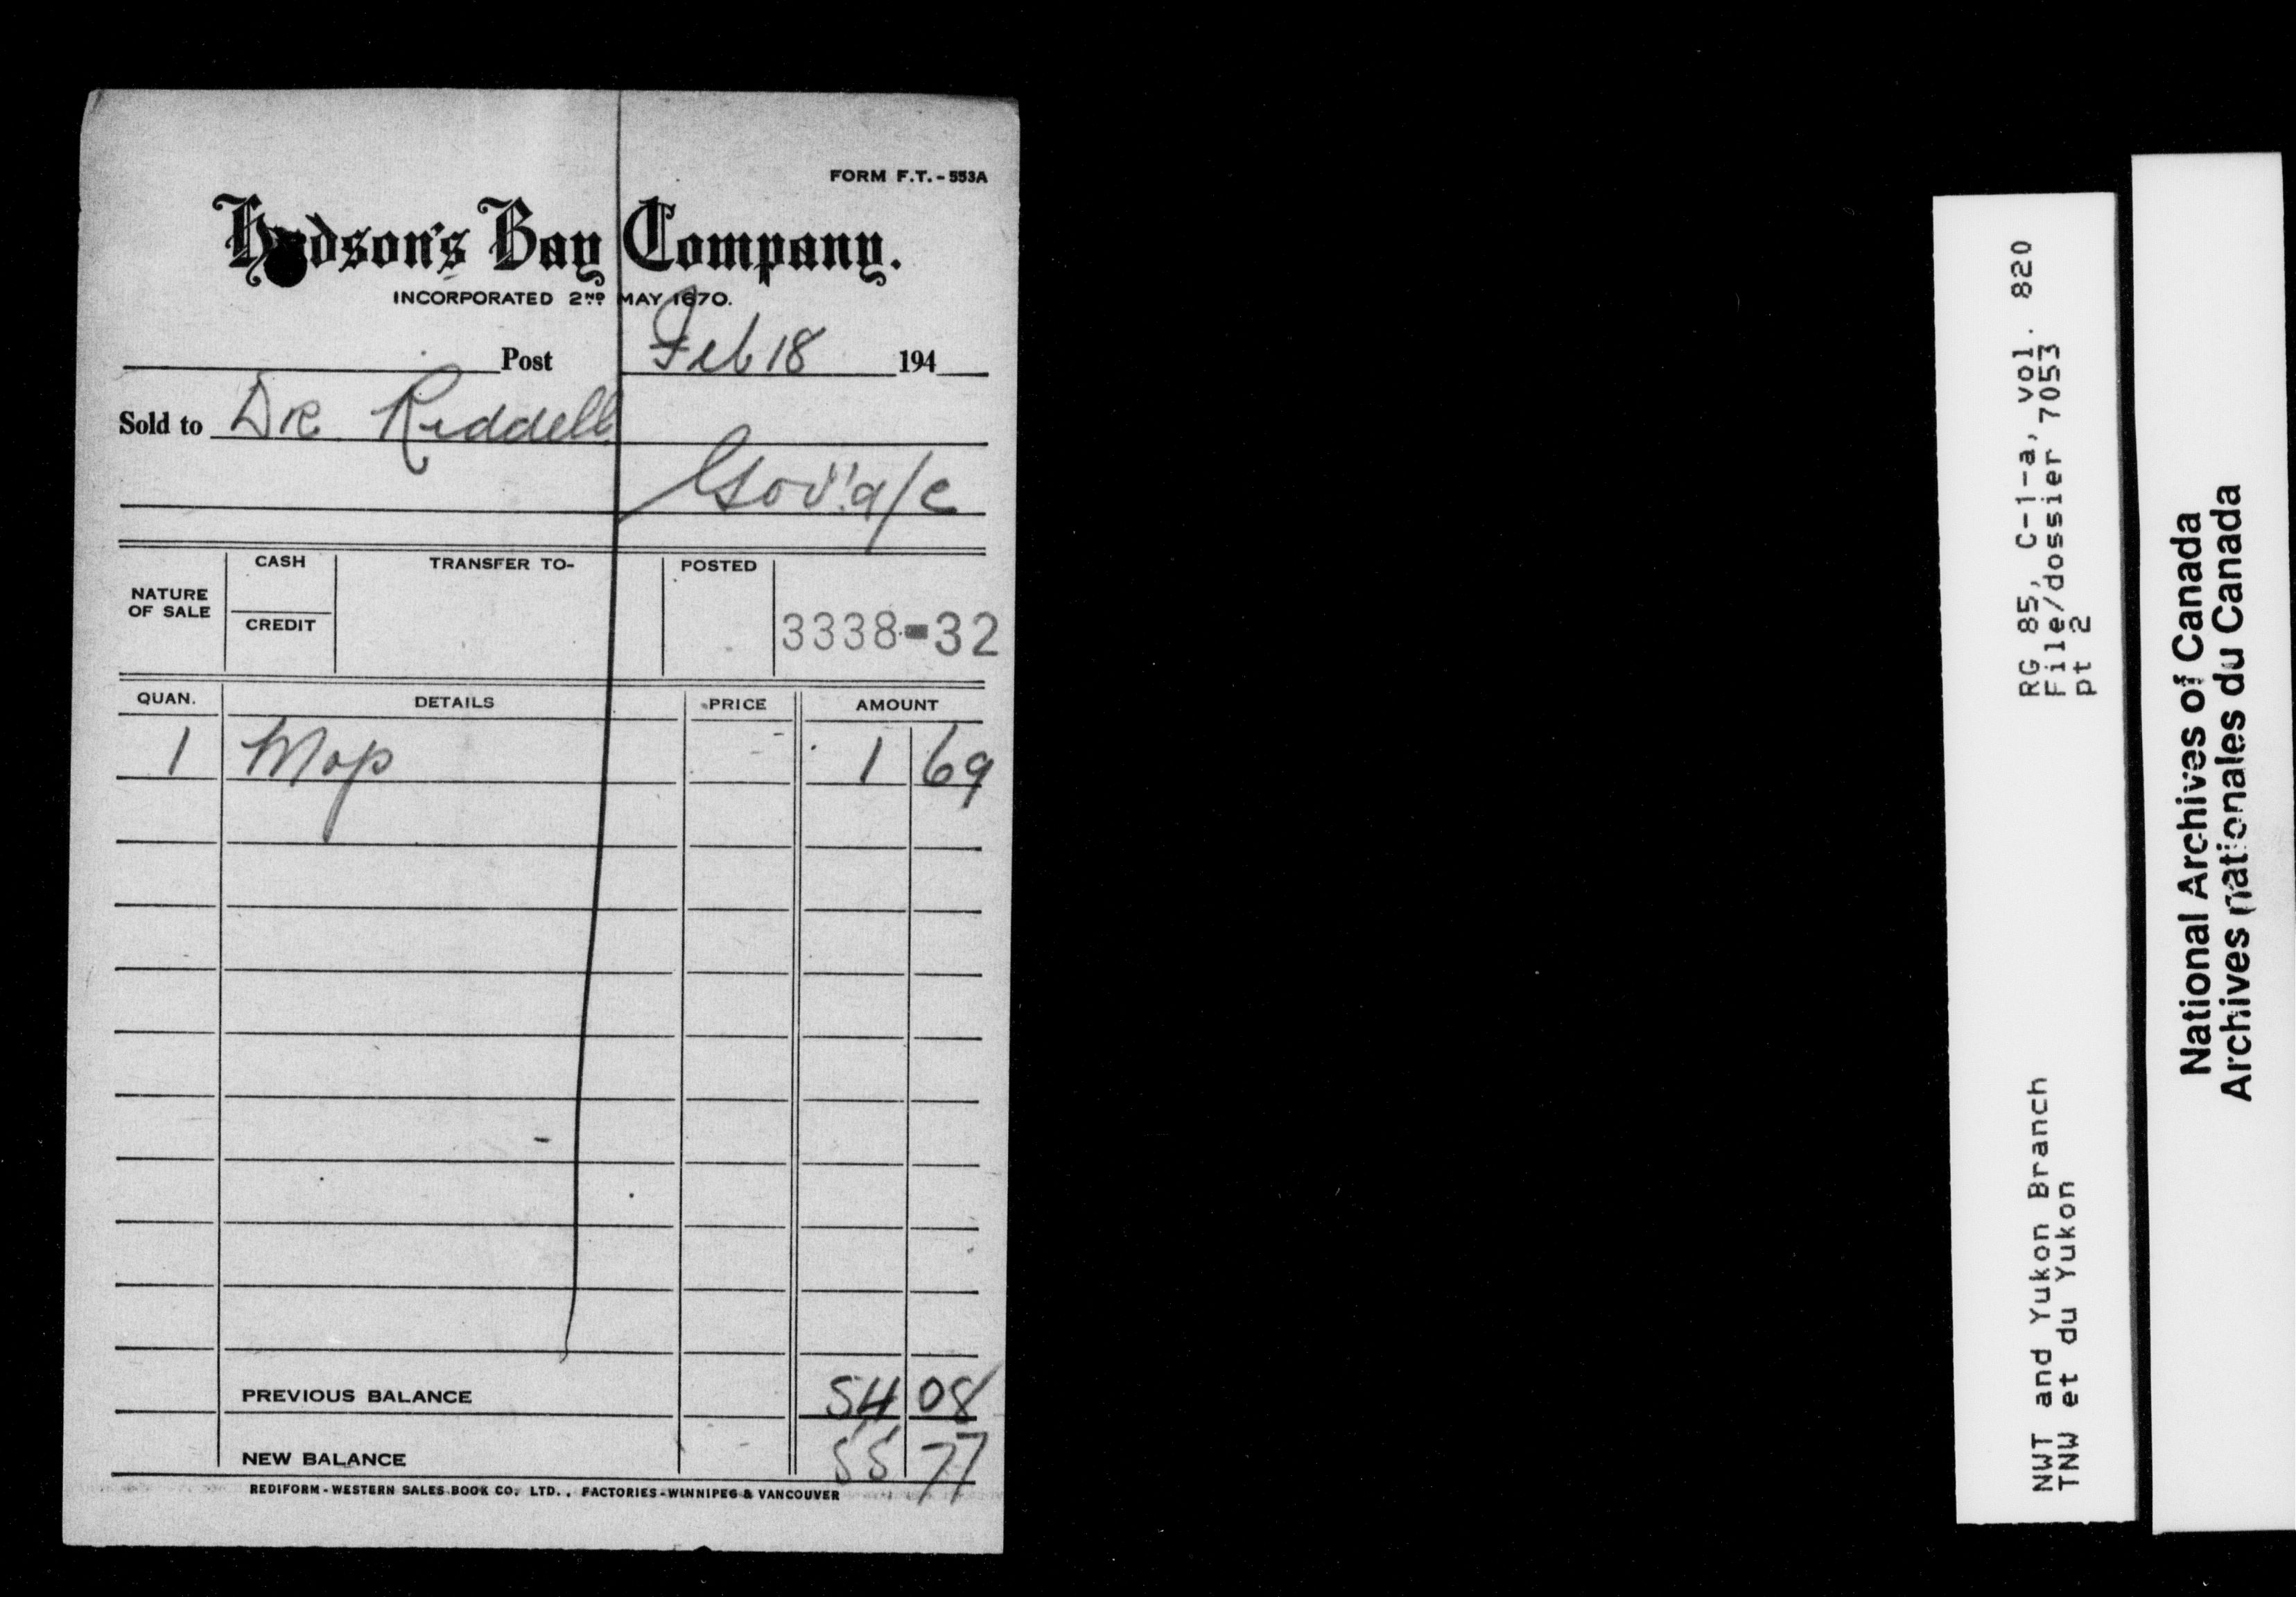 FORM F.T.-553A
Hudson's Bay Company.
INCORPORATED 2ND MAY 1670.
Post Feb 18 194
Sold to Dr Riddell
Gov't a/c
NATURE OF SALE CASH CREDIT TRANSFER TO- POSTED 3338-32
QUAN. DETAILS PRICE AMOUNT
1 Mop 1 69
PREVIOUS BALANCE 54 08
NEW BALANCE 55 77
REDIFORM-WESTERN SALES BOOK CO. LTD., FACTORIES-WINNIPEG & VANCOUVER
RG 85, C-1-a, vol. 820
File/dossier 7053
pt 2
NWT and Yukon Branch
TNW et du Yukon
National Archives of Canada
Archives nationales du Canada